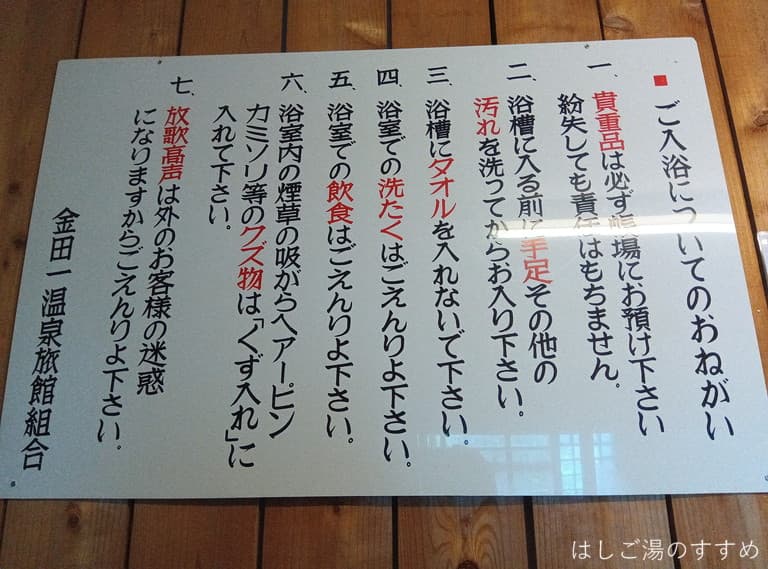 ■ ご入浴についてのおねがい
一、貴重品は必ず帳場にお預け下さい
紛失しても責任はもちません。
二、浴槽に入る前に手足その他の
汚れを洗ってからお入り下さい。
三、浴槽にタオルを入れないで下さい。
四、浴室での洗たくはごえんりよ下さい。
五、浴室での飲食はごえんりよ下さい。
六、浴室内の煙草の吸がらヘアーピン
カミソリ等のクズ物は「くず入れ」に
入れて下さい。
七、放歌高声は外のお客様の迷惑
になりますからごえんりよ下さい.
金田一温泉旅館組合
はしご湯のすすめ